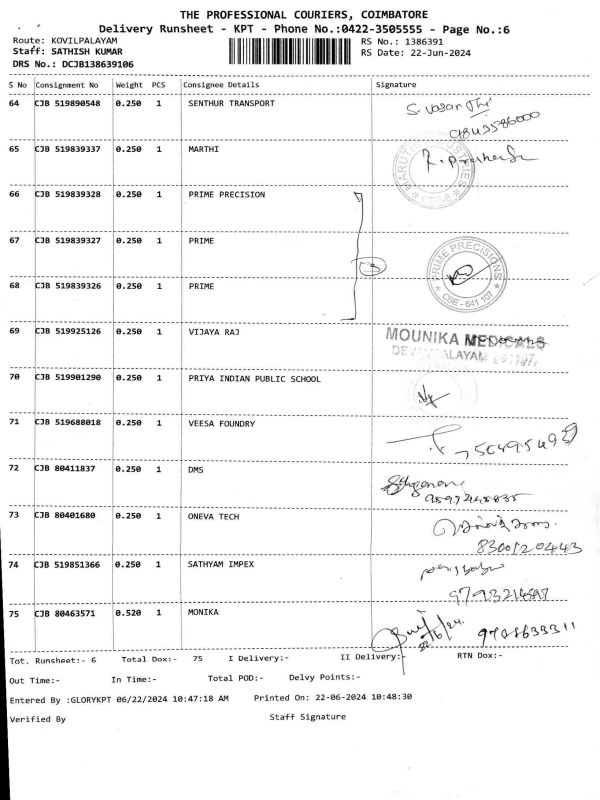 THE PROFESSIONAL COURIERS, COIMBATORE
Delivery Runsheet - KPT - Phone No.:0422-3505555 - Page No.:6
Route: KOVILPALAYAM RS No.: 1386391
Staff: SATHISH KUMAR RS Date: 22-Jun-2024
DRS No.: DCJB138639106
S No Consignment No Weight PCS Consignee Details Signature
64 CJB 519890548 0.250 1 SENTHUR TRANSPORT
65 CJB 519839337 0.250 1 MARTHI
66 CJB 519839328 0.250 1 PRIME PRECISION
67 CJB 519839327 0.250 1 PRIME
PRIME PRECISIONS
CBE - 641 107
68 CJB 519839326 0.250 1 PRIME
69 CJB 519925126 0.250 1 VIJAYA RAJ MOUNIKA MEDICALS
70 CJB 519901290 0.250 1 PRIYA INDIAN PUBLIC SCHOOL
71 CJB 519688018 0.250 1 VEESA FOUNDRY
72 CJB 80411837 0.250 1 DMS
73 CJB 80401680 0.250 1 ONEVA TECH
8300120443
74 CJB 519851366 0.250 1 SATHYAM IMPEX
75 CJB 80463571 0.520 1 MONIKA
Tot. Runsheet:- 6 Total Dox:- 75 I Delivery:- II Delivery:- RTN Dox:-
Out Time:- In Time:- Total POD:- Delvy Points:-
Entered By :GLORYKPT 06/22/2024 10:47:18 AM Printed On: 22-06-2024 10:48:30
Verified By Staff Signature